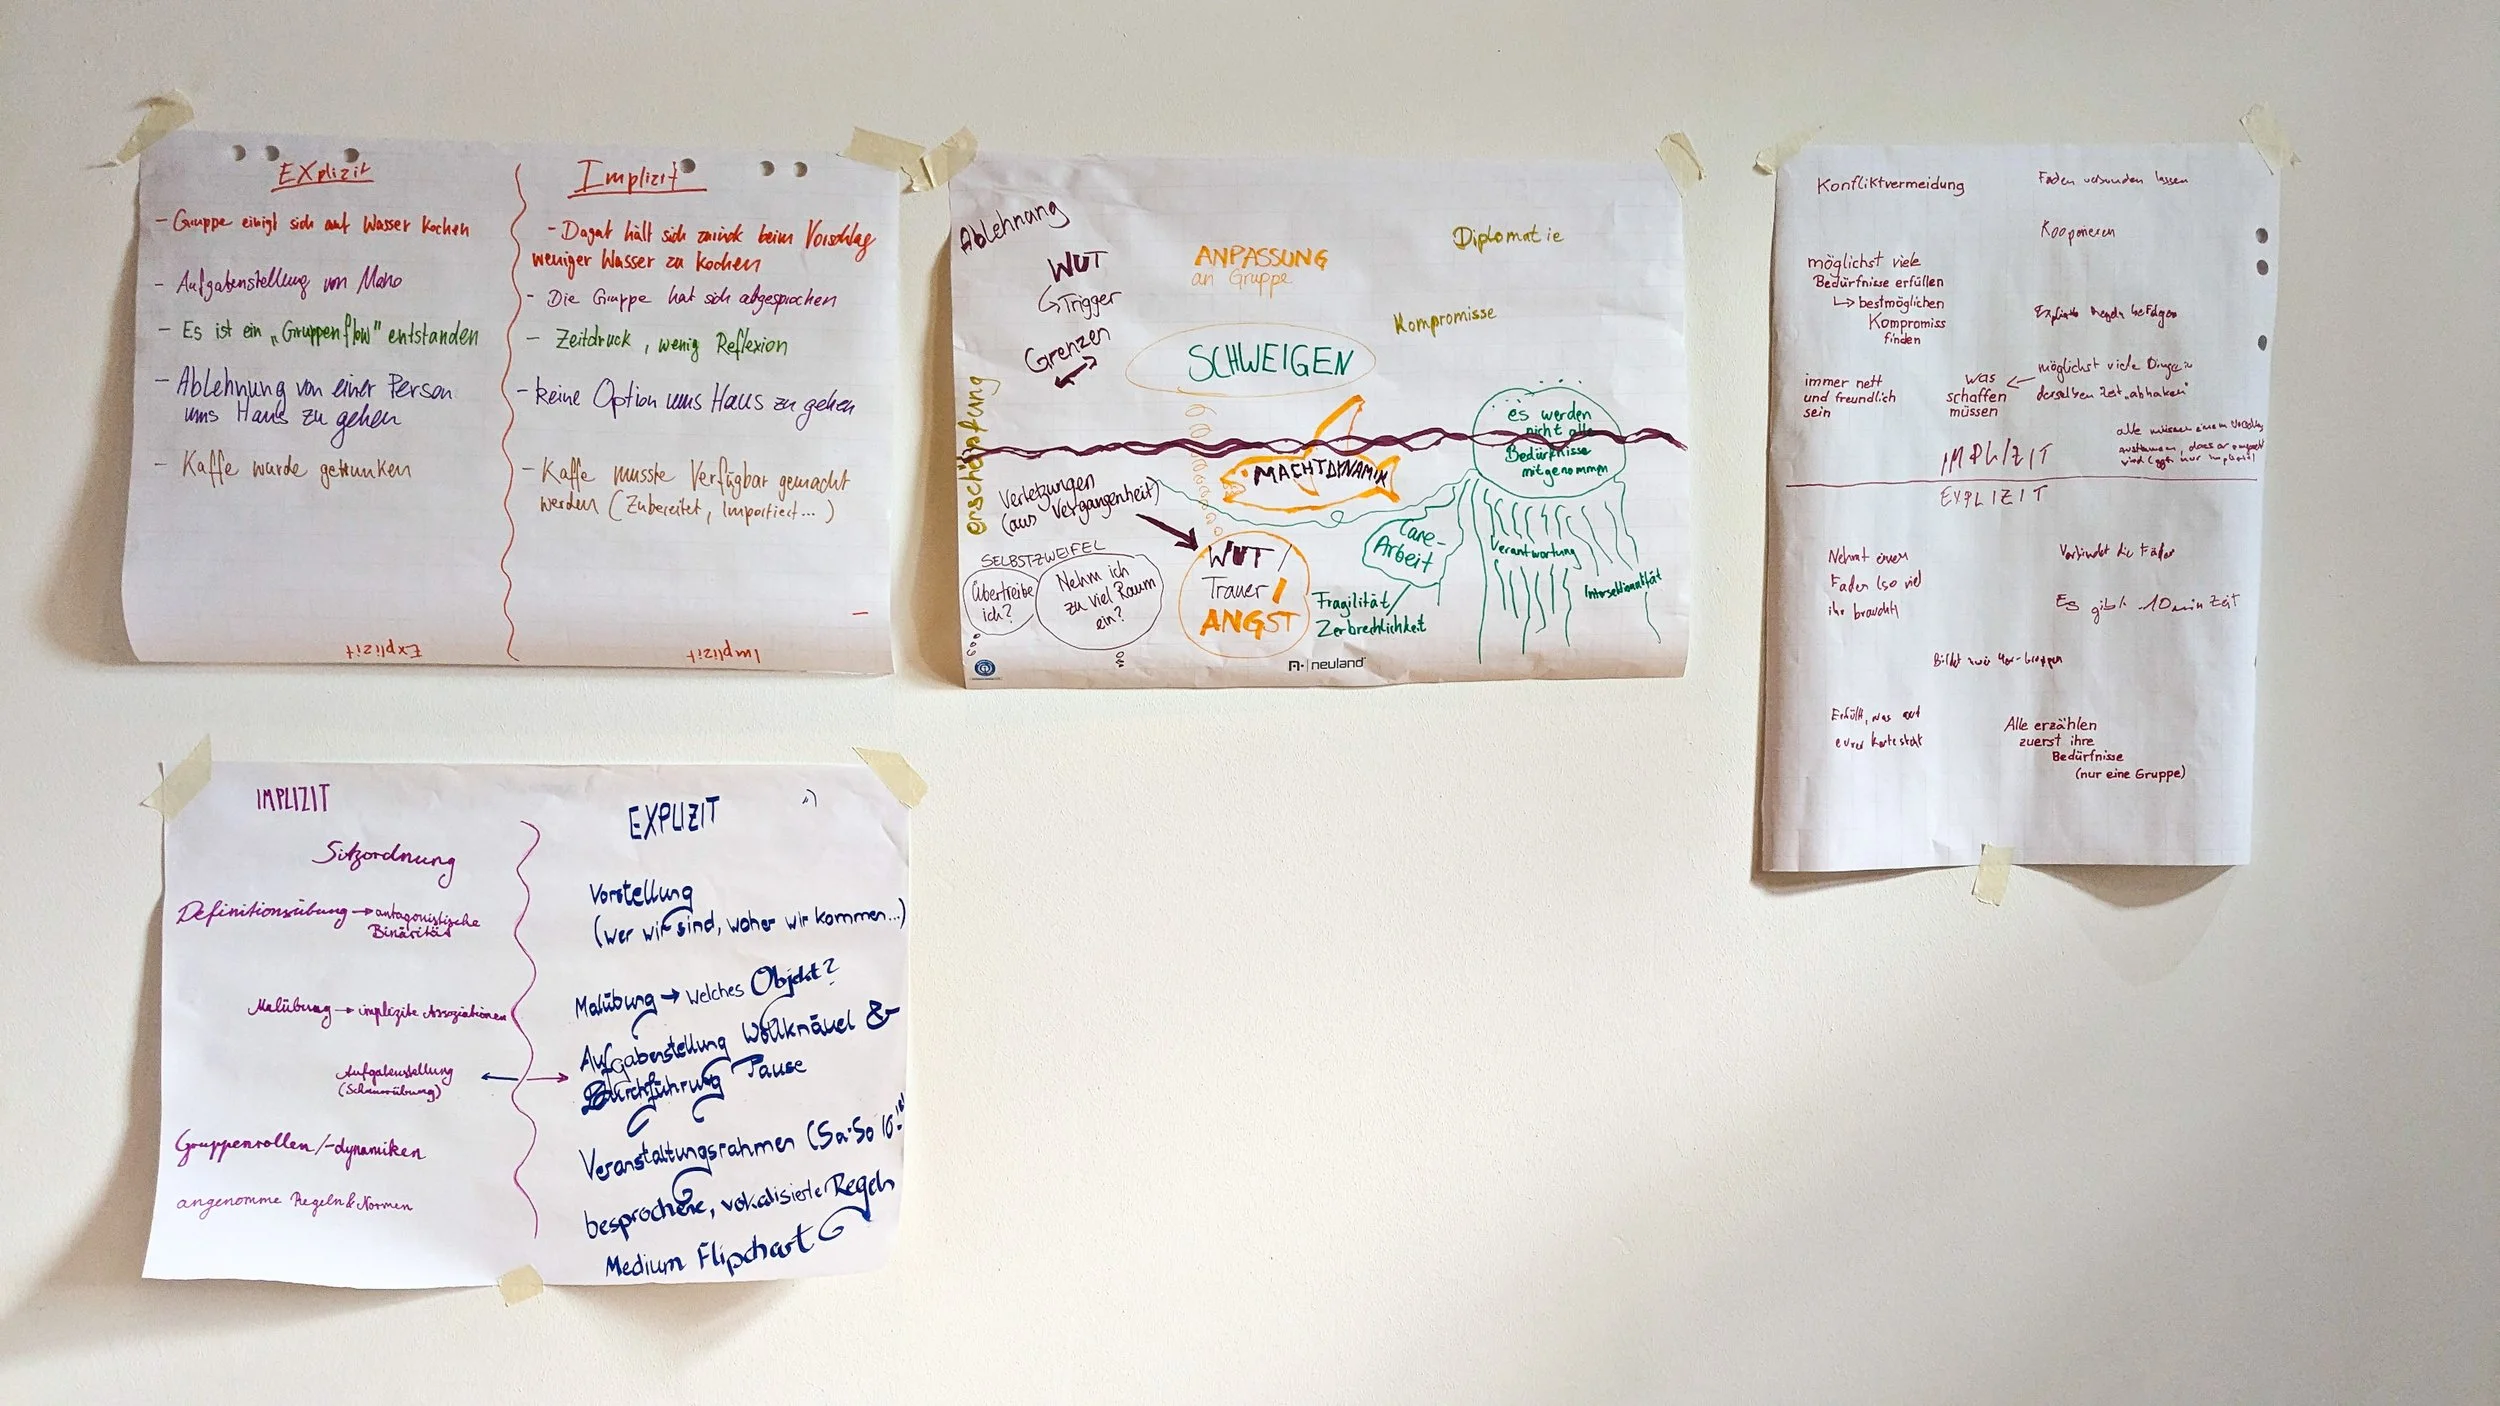 EXplizit
- Gruppe einigt sich auf Wasser kochen
- Aufgabenstellung von Mano
- Es ist ein „Gruppenflow" entstanden
- Ablehnung von einer Person
ums Haus zu gehen
- Kaffe wurde getrunken
Explizit
Implizit
- Dagat hält sich zurück beim Vorschlag
weniger Wasser zu kochen
- Die Gruppe hat sich abgesprochen
- Zeitdruck, wenig Reflexion
- keine Option ums Haus zu gehen
- Kaffe musste Verfügbar gemacht
werden (Zubereitet, Importiert...)
Implizit
Ablehnung
WUT
↳Trigger
Grenzen
erschöpfung
ANPASSUNG
an Gruppe
SCHWEIGEN
Diplomatie
Kompromisse
es werden
nicht alle
Bedürfnisse
mitgenommen
MACHTDYNAMIK
Verletzungen
(aus Vergangenheit)
SELBSTZWEIFEL
Übertreibe
ich?
Nehm ich
zu viel Raum
ein?
WUT /
Trauer /
ANGST
Care-
Arbeit
Fragilität/
Zerbrechlichkeit
Verantwortung
Intersektionalität
neuland
Konfliktvermeidung
Faden verbunden lassen
Kooperieren
möglichst viele
Bedürfnisse erfüllen
↳ bestmöglichen
Kompromiss
finden
Explizite Regeln befolgen
immer nett
und freundlich
sein
was
schaffen
müssen
möglichst viele Dinge in
derselben Zeit „abhaken"
alle müssen einem Vorschlag
zustimmen, dass er
IMPLIZIT
EXPLIZIT
Nehmt einen
Faden (so viel
ihr braucht)
Verbindet die Fäden
Es gibt 10min Zeit
Bildet zwei 4er-Gruppen
Erfüllt, was auf
eurer Karte steht
Alle erzählen
zuerst ihre
Bedürfnisse
(nur eine Gruppe)
IMPLIZIT
Sitzordnung
Definitionsübung → antagonistische
Binärität
Malübung → implizite Assoziationen
Aufgabenstellung
Gruppenrollen/-dynamiken
angenomme Regeln & Normen
EXPLIZIT
Vorstellung
(wer wir sind, woher wir kommen...)
Malübung → welches Objekt?
Aufgabenstellung Wollknäuel &
Durchführung Pause
Veranstaltungsrahmen (Sa-So 10-
besprochene, vokalisierte Regeln
Medium Flipchart